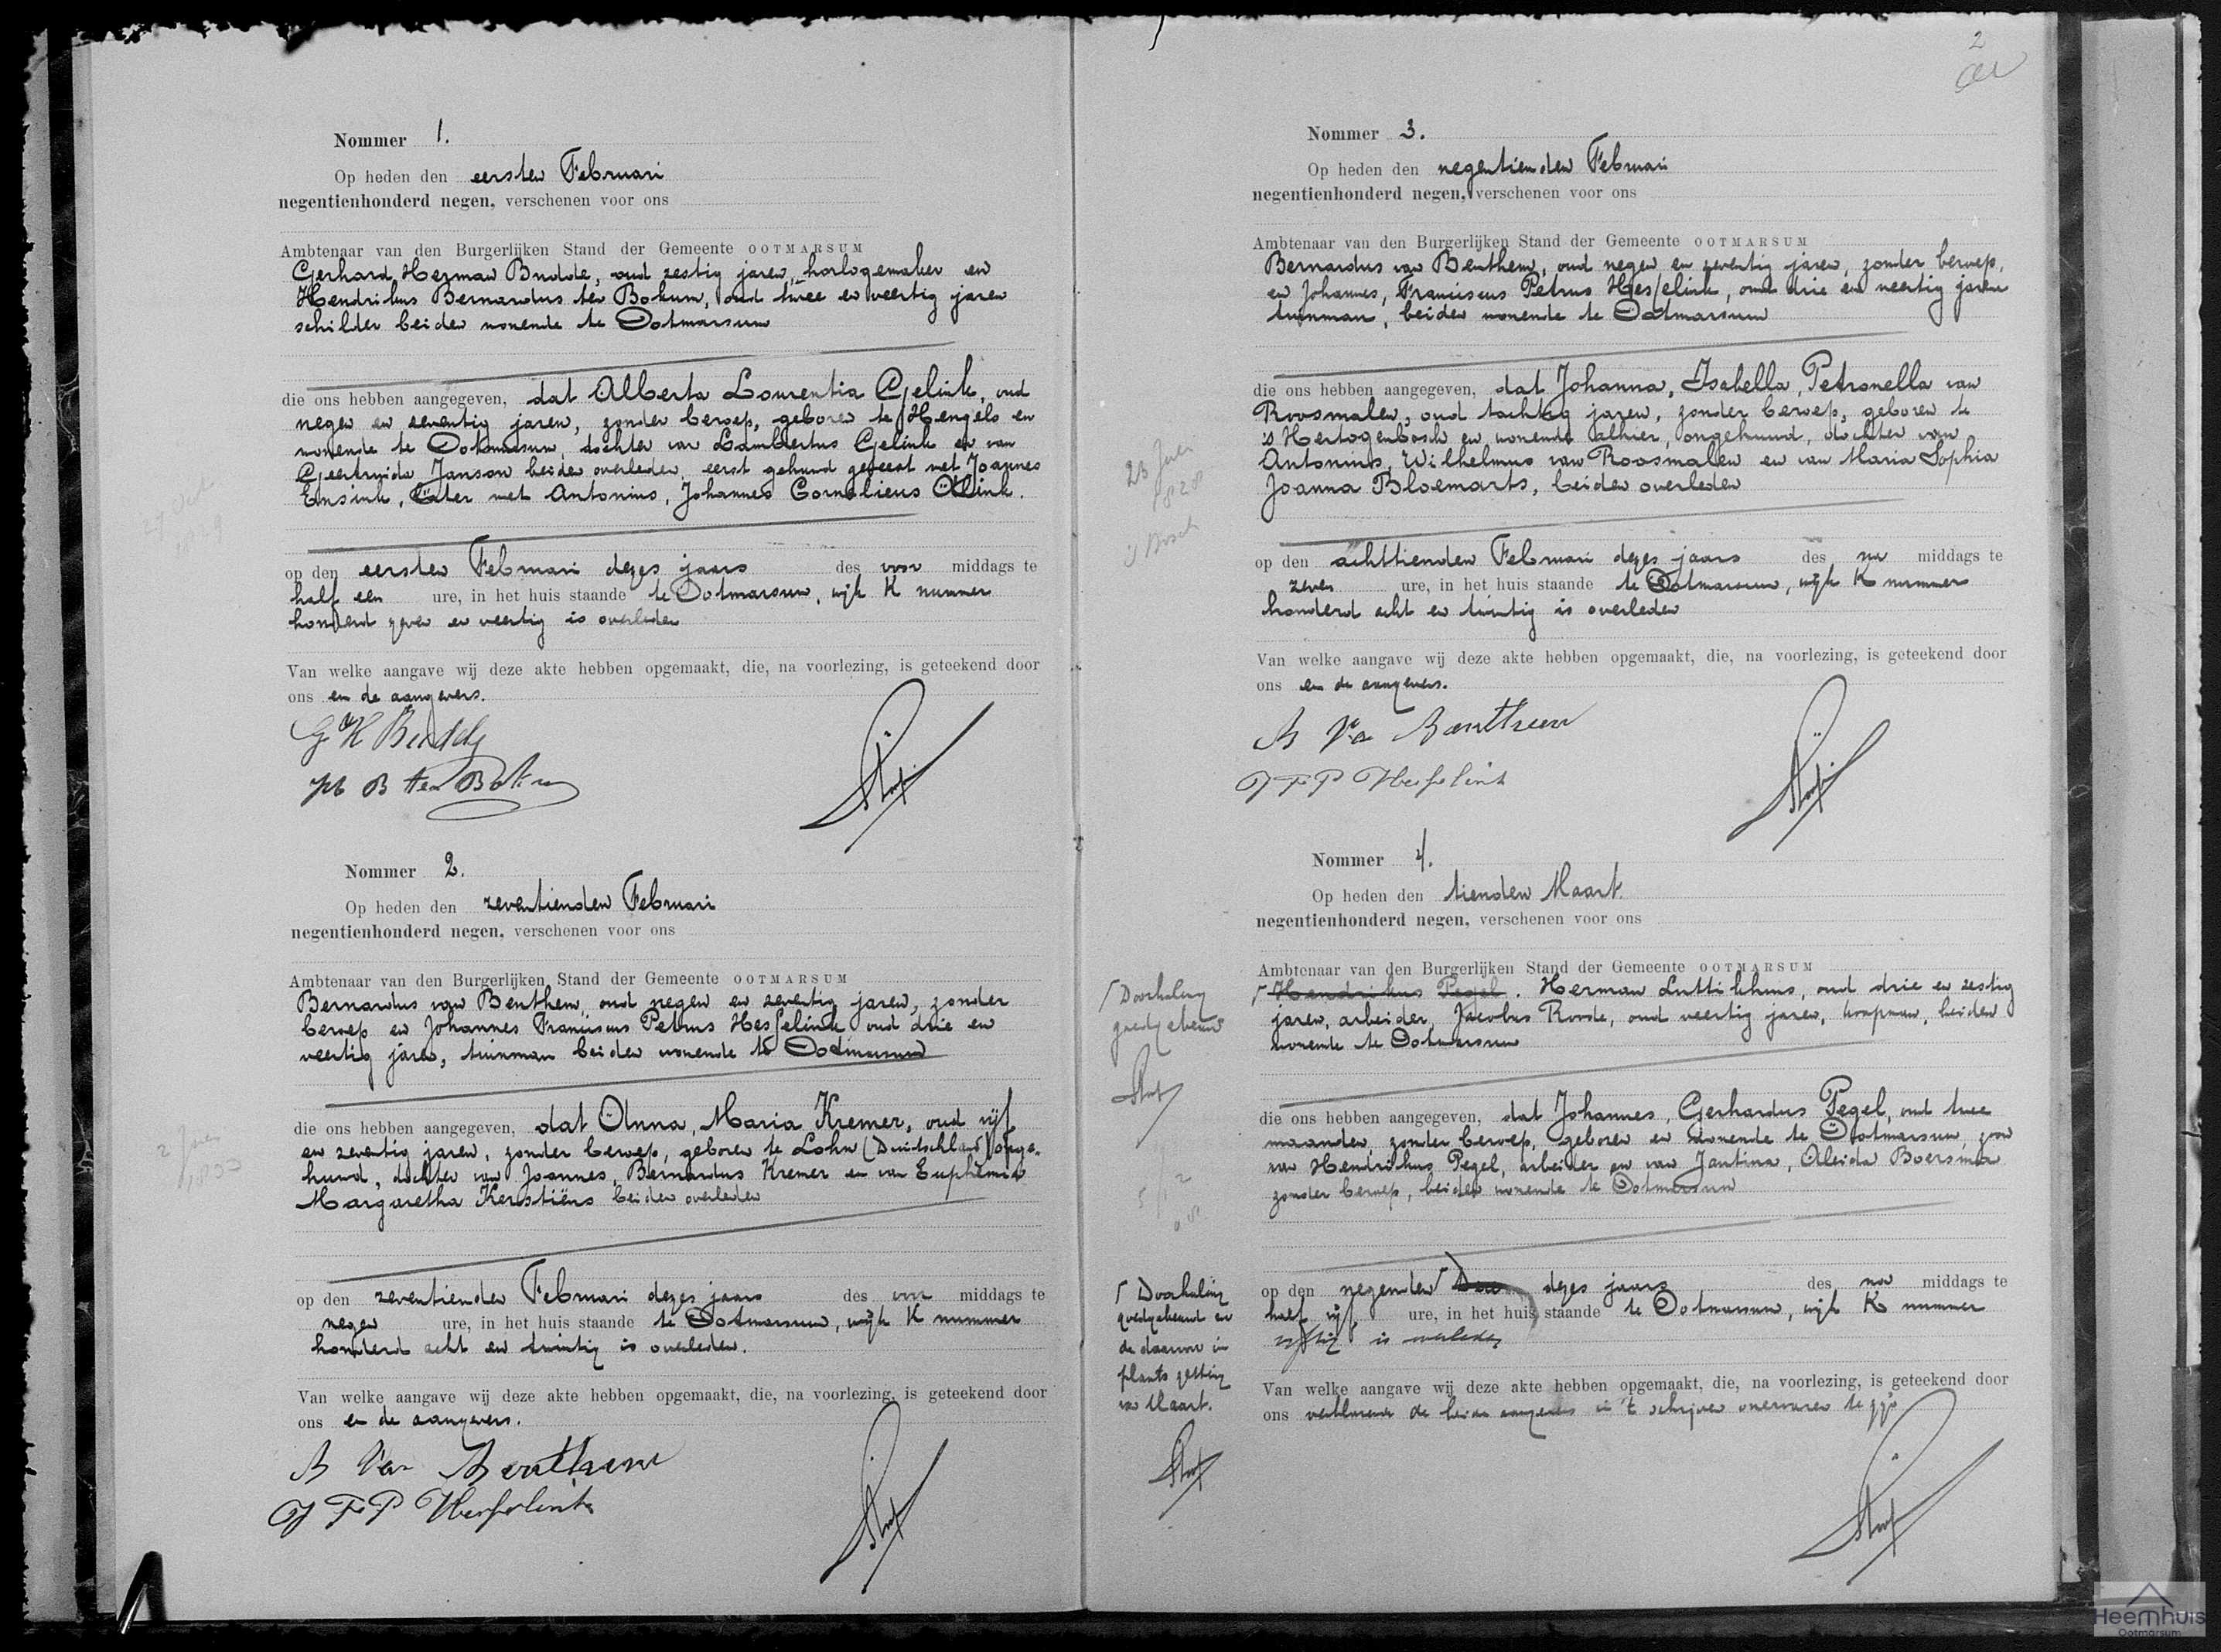 Nommer 1.
Op heden den eersten Februari
negentienhonderd negen, verschenen voor ons
Ambtenaar van den Burgerlijken Stand der Gemeente OOTMARSUM
Gerhard, Herman Budde, oud zestig jaren, horlogemaker en
Hendrikus Bernardus ten Bokum, oud twee en veertig jaren
schilder beiden wonende te Ootmarsum
die ons hebben aangegeven, dat Alberta Lourentia Gelink, oud
negen en zeventig jaren, zonder beroep, geboren te Hengelo en
wonende te Ootmarsum, dochter van Lambertus Gelink en van
Geertruida Janson beiden overleden, eerst gehuwd geweest met Joannes
Ensink, later met Antonius, Johannes Cornelieus Olink.
op den eersten Februari dezes jaars des voor middags te
half een ure, in het huis staande te Ootmarsum, wijk K nummer
honderd zeven en veertig is overleden
Van welke aangave wij deze akte hebben opgemaakt, die, na voorlezing, is geteekend door
ons en de aangevers.
G H Budde
H B ten Bokum
Nommer 2.
Op heden den zeventienden Februari
negentienhonderd negen, verschenen voor ons
Ambtenaar van den Burgerlijken Stand der Gemeente OOTMARSUM
Bernardus van Benthem, oud negen en zeventig jaren, zonder
beroep en Johannes Franciscus Petrus Hesselink oud drie en
veertig jaren, tuinman beiden wonende te Ootmarsum
die ons hebben aangegeven, dat Anna, Maria Kremer, oud vijf
en zeventig jaren, zonder beroep, geboren te Lohn (Duitschland) onge-
huwd, dochter van Joannes, Bernardus Kremer en van Euphemia
Margaretha Kerstiëns beiden overleden
op den zeventienden Februari dezes jaars des voor middags te
negen ure, in het huis staande te Ootmarsum, wijk K nummer
honderd acht en twintig is overleden.
Van welke aangave wij deze akte hebben opgemaakt, die, na voorlezing, is geteekend door
ons en de aangevers.
B Van Benthem
J F P Hesselink
2
Nommer 3.
Op heden den negentienden Februari
negentienhonderd negen, verschenen voor ons
Ambtenaar van den Burgerlijken Stand der Gemeente OOTMARSUM
Bernardus van Benthem, oud negen en zeventig jaren, zonder beroep,
en Johannes, Franciscus Petrus Hesselink, oud drie en veertig jaren
tuinman, beiden wonende te Ootmarsum
die ons hebben aangegeven, dat Johanna, Isabella, Petronella van
Roosmalen, oud tachtig jaren, zonder beroep, geboren te
's Hertogenbosch en wonende alhier, ongehuwd, dochter van
Antonius, Wilhelmus van Roosmalen en van Maria Sophia
Joanna Bloemarts, beiden overleden
23
1828
Bosch
op den achttienden Februari dezes jaars des na middags te
zeven ure, in het huis staande te Ootmarsum, wijk K nummer
honderd acht en twintig is overleden
Van welke aangave wij deze akte hebben opgemaakt, die, na voorlezing, is geteekend door
ons en de aangevers.
B Van Benthem
J F P Hesselink
Nommer 4.
Op heden den tienden Maart.
negentienhonderd negen, verschenen voor ons
Ambtenaar van den Burgerlijken Stand der Gemeente OOTMARSUM
Hendrikus Pegel. Herman Luttikhuis, oud drie en zestig
jaren, arbeider, Jacobus Roode, oud veertig jaren, koopman, beiden
wonende te Ootmarsum
Doorhaling
goedgekeurd
die ons hebben aangegeven, dat Johannes, Gerhardus Pegel, oud twee
maanden, zonder beroep, geboren en wonende te Ootmarsum, zoon
van Hendrikus Pegel, arbeider en van Jantina, Aleida Boersma
zonder beroep, beiden wonende te Ootmarsum
op den negenden dezes jaars des na middags te
half vijf ure, in het huis staande te Ootmarsum, wijk K nummer
vijftig is overleden
Doorhaling
goedgekeurd en
de daarvoor in
plaats zetting
van Maart.
Van welke aangave wij deze akte hebben opgemaakt, die, na voorlezing, is geteekend door
ons verklarende de beide aangevers in 't schrijven onervaren te zijn
Heemhuis
Ootmarsum